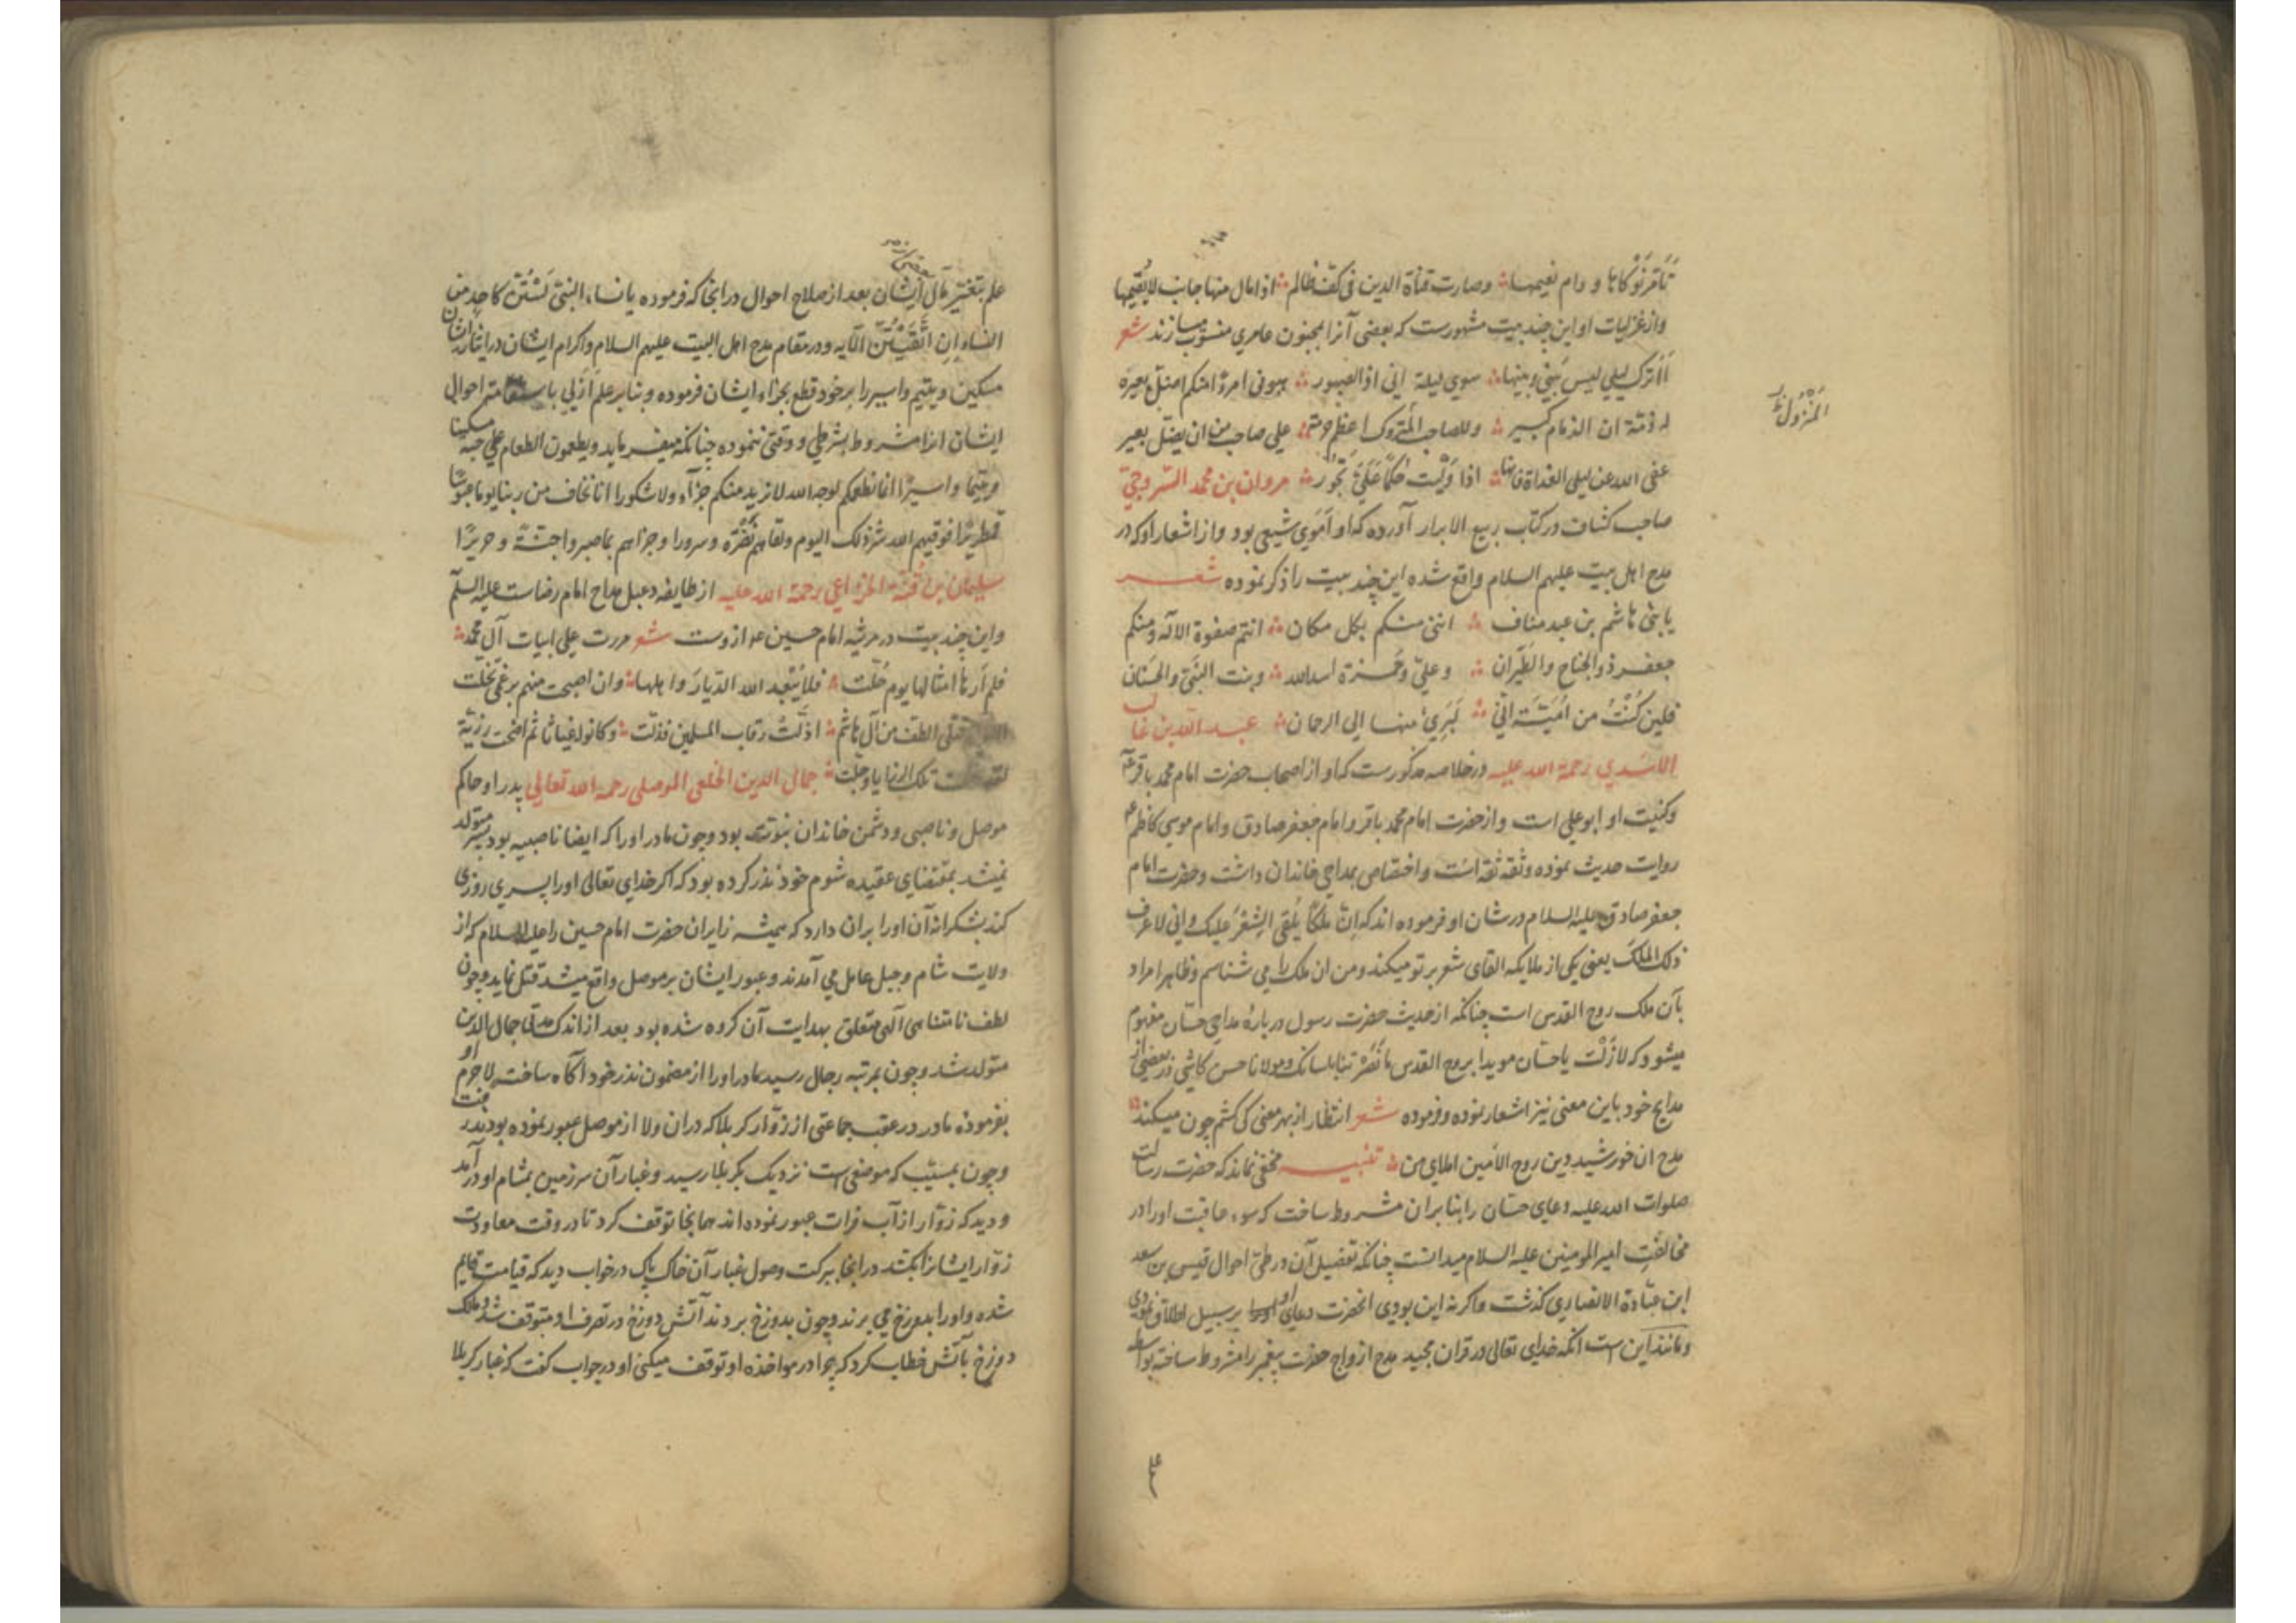 تأقرنوکاها و دام نعیمها وصارت قناة الدین فی کف ظالم اذا مال منها جانب لایقیمها
واز غزلیات او این چند بیت مشهورست که بعضی آنرا بمجنون عامری منسوب میسازند شعر
أأترک لیلی لیس بینی وبینها سوی لیلة انی اذا لصبور هبونی امرءا منکم اضل بعیره
له ذمة ان الذمام کبیر وللصاحب المتروک اعظم حرمة علی صاحب من ان یضل بعیر
عفی الله عن لیلی الغداة فانها اذا ولیت حکما علی تجور مروان بن محمد السروجی
صاحب کشاف در کتاب ربیع الابرار آورده که او اموی شیعی بود و از اشعار او که در
مدح اهل بیت علیهم السلام واقع شده این چند بیت را ذکر نموده شعر
یا بنی هاشم بن عبد مناف اننی منکم بکل مکان انتم صفوة الاله ومنکم
جعفر ذو الجناح والطیران وعلی وحمزة اسد الله وبنت النبی والحسنان
فلین کنت من امیة انی لبریء منها الی الرحمان عبد الله بن غالب
الاسدی رحمة الله علیه در خلاصه مذکورست که او از اصحاب حضرت امام محمد باقر ع
وکنیت او ابو علی است و از حضرت امام محمد باقر و امام جعفر صادق و امام موسی کاظم ع
روایت حدیث نموده وثقه ثقه است و اختصاص بمداحی خاندان داشت و حضرت امام
جعفر صادق علیه السلام در شان او فرموده اند که ان ملکا یلقی الشعر علیک وانی لاعرف
ذلک الملک یعنی یکی از ملایکه القای شعر بر تو میکند ومن ان ملک را می شناسم وظاهرا مراد
بآن ملک روح القدس است چنانکه از حدیث حضرت رسول در بارهٔ مداحی حسان مفهوم
میشود که لا زلت یا حسان مویدا بروح القدس ما نصرتنا بلسانک ومولانا حسن کاشی در بعضی از
مدایح خود باین معنی نیز اشعار نموده و فرموده شعر انتظار از بهر معنی کی کشم چون میکند
مدح ان خورشید دین روح الامین املای من تنبیه مخفی نماند که حضرت رسالت
صلوات الله علیه دعای حسان را بنا بران مشروط ساخت که سوء عاقبت او را در
مخالفت امیر المومنین علیه السلام میدانست چنانکه تفصیل آن در طی احوال قیس بن سعد
ابن عبادة الانصاری گذشت و اگر نه این بودی انحضرت دعای او بر سبیل اطلاق نمودی
ومانند این است انکه خدای تعالی در قران مجید مدح ازواج حضرت پیغمبر را مشروط ساخته بواسطه
المنزول
علم
علم بتغیر حال ایشان بعد از صلاح احوال در انجا که فرموده یا نساء النبی لستن کاحد من
النساء ان اتقیتن الآیه ودر مقام مدح اهل البیت علیهم السلام واکرام ایشان در ایثار
مسکین ویتیم واسیر را بر خود قطع بجزاء ایشان فرموده وبنا بر علم ازلی باستقامت احوال
ایشان انرا مشروط بشرطی و وقتی ننموده چنانکه میفرماید ویطعمون الطعام علی حبه مسکینا
ویتیما واسیرا انما نطعمکم لوجه الله لا نرید منکم جزاء ولا شکورا انا نخاف من ربنا یوما عبوسا
قمطریرا فوقیهم الله شر ذلک الیوم ولقاهم نضرة وسرورا وجزاهم بما صبروا جنة وحریرا
سلیمان بن قتة الخزاعی رحمة الله علیه از طایفه دعبل مداح امام رضاست علیه السلم
واین چند بیت در مرثیه امام حسین ع از وست شعر مررت علی ابیات آل محمد
فلم ار ها امثالها یوم حلت فلا یبعد الله الدیار واهلها وان اصبحت منهم برغمی تخلت
قتلی الطف من آل هاشم اذلت رقاب المسلمین فذلت وکانوا غیاثا ثم اضحت رزیة
لقد تلک الرزایا وجلت جمال الدین الخلعی الموصلی رحمه الله تعالی پدر او حاکم
موصل وناصبی ودشمن خاندان نبوت بود وچون مادر او را که ایضا ناصبیه بود پسر متولد
نمیشد بمقتضای عقیده شوم خود نذر کرده بود که اکر خدای تعالی او را پسری روزی
کند بشکرانه آن او را بران دارد که همیشه زایران حضرت امام حسین را علیه السلام که از
ولایت شام وجبل عامل می آمدند وعبور ایشان بر موصل واقع میشد قتل نماید وچون
لطف نامتناهی الهی متعلق بهدایت آن کروه شده بود بعد از اندک مدتی جمال الدین
متولد شد وچون بمرتبه رجال رسید مادر او را از مضمون نذر خود آکاه ساخت لاجرم او
بفرموده مادر در عقب جماعتی از زوار کربلا که دران ولا از موصل عبور نموده بودند
وچون بمسیب که موضعی است نزدیک بکربلا رسید وغبار آن سرزمین بمشام او در آمد
ودید که زوار از آب فرات عبور نموده اند همانجا توقف کرد تا در وقت معاودت
زوار ایشانرا بکشد در انجا ببرکت وصول غبار آن خاک پاک در خواب دید که قیامت قایم
شده واو را بدوزخ می برند وچون بدوزخ بردند آتش دوزخ در تصرف او متوقف شد وملک
دوزخ باتش خطاب کرد که چرا در مواخذه او توقف میکنی او در جواب کفت که غبار کربلا